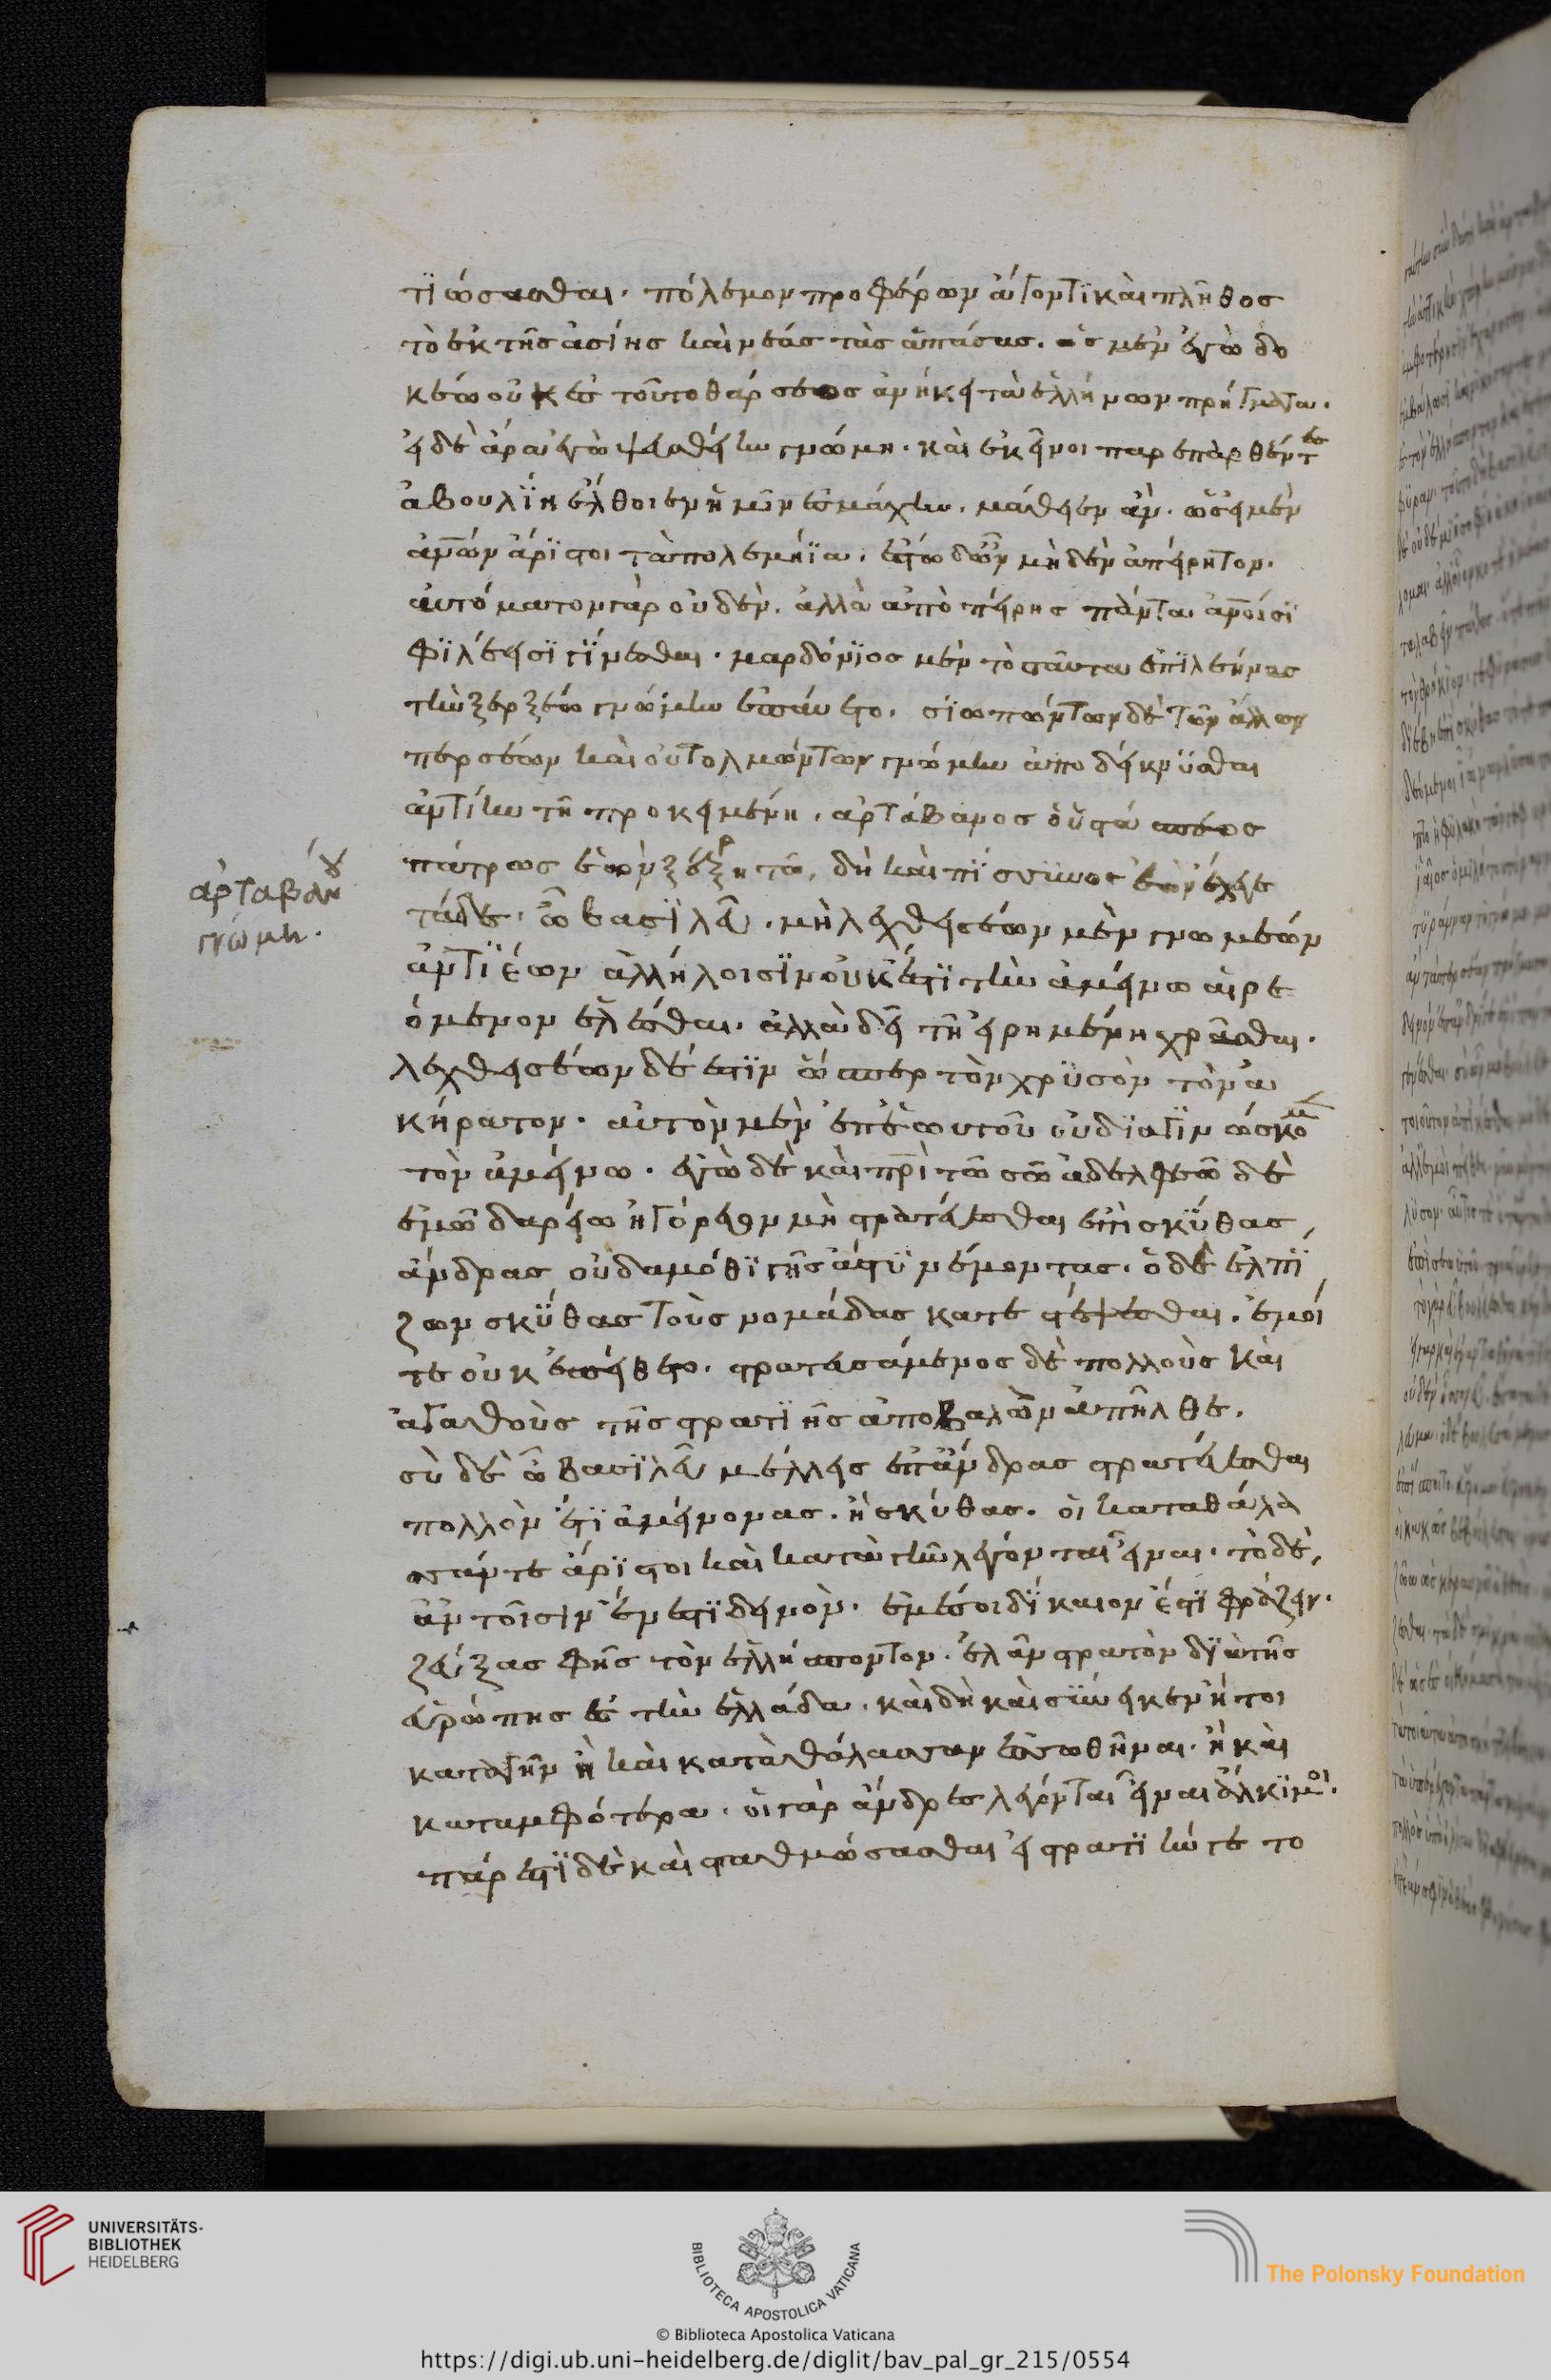 τιώσεσθαι. πόλεμον προφέρων ἄγοντι καὶ πλῆθος
τὸ ἐκ τῆς ἀσίης καὶ νέας τὰς ἁπάσας. ὡς μὲν ἐγὼ δο
κέω οὐκ ἐς τοῦτο θάρσεος ἀνήκει τὰ ἑλλήνων πρήγματα.
εἰ δὲ ἄρα ἐγὼ ψευσθείην γνώμη. καὶ ἐκεῖνοι παρεπαρθέντες
ἀβουλίη ἔλθοιεν ἡμῖν ἐς μάχην. μάθειεν ἂν. ὥς εἰμεν
ἀνῶν ἄριστοι τὰ πολεμήϊα. ἔστω δ' ὦν μηδὲν ἀπείρητον.
αὐτόματον γὰρ οὐδέν. ἀλλὰ ἀπὸ πείρης πάντα ἀνοισι
φιλέει γίνεσθαι. μαρδόνιος μὲν τοσαῦτα ἐπιλεήνας
τὴν ξέρξεω γνώμην ἐπέπαυτο. σιωπώντων δὲ τῶν ἄλλων
περσέων καὶ οὐ τολμώντων γνώμην ἀποδείκνυσθαι
ἀντίην τῆ προκειμένη. ἀρτάβανος ὁ ὑστάσπεος
πάτρως ἐὼν ξέρξη τῶ, δὴ καὶ πίσυνος ἐὼν ἔλεγε
τάδε. ὦ βασιλεῦ. μὴ λεχθεισέων μὲν γνωμέων
ἀντιέων ἀλλήλοισιν οὐκ ἔστι τὴν ἀμείνω αἱρε
όμενον ἑλέσθαι. ἀλλὰ δεῖ τῆ εἰρημένη χρᾶσθαι.
λεχθεισέων δὲ ἔστιν ὥσπερ τὸν χρυσὸν τὸν ἀ
κήρατον. αὐτὸν μὲν ἐπ' ἑωυτοῦ οὐ διαγινώσκομεν
τὸν ἀμείνω. ἐγὼ δὲ καὶ πρὶ τῶ σῶ ἀδελφεῶ δὲ
ἐμῶ δαρείω ἠγόρευον μὴ στρατεύεσθαι ἐπὶ σκύθας,
ἄνδρας οὐδαμόθι γῆς ἄστυ νέμοντας. ὁ δὲ ἐλπί
ζων σκύθας τοὺς νομάδας καταστρέψεσθαι. ἐμοί
τε οὐκ ἐπείθετο. στρατευσάμενος δὲ πολλοὺς καὶ
ἀγαθοὺς τῆς στρατιῆς ἀποβαλὼν ἀπῆλθε.
σὺ δὲ ὦ βασιλεῦ μέλλεις ἐπ' ἄνδρας στρατεύεσθαι
πολλὸν ἔτι ἀμείνονας. ἢ σκύθας. οἳ κατὰ θάλασ
σάν τε ἄριστοι καὶ κατὰ γῆν λέγονται εἶναι. τὸ δὲ,
αὐτοῖσιν ἔνεστι δεινὸν. ἐμὲ σοὶ δίκαιόν ἐστι φράζειν.
ζεύξας φῆς τὸν ἑλλήσποντον. ἐλᾶν στρατὸν διὰ τῆς
εὐρώπης ἐς τὴν ἑλλάδα. καὶ δὴ καὶ συνήνεικεν ἤτοι
κατὰ γῆν ἢ καὶ κατὰ θάλασσαν ἑσσωθῆναι. ἢ καὶ
κατ' ἀμφότερα. οἱ γὰρ ἄνδρες λέγονται εἶναι ἄλκιμοι.
πάρεστι δὲ καὶ σταθμώσασθαι εἰ στρατιήν τε το
ἀρταβάνου
γνώμη.
UNIVERSITÄTS-
BIBLIOTHEK
HEIDELBERG
BIBLIOTECA APOSTOLICA VATICANA
The Polonsky Foundation
© Biblioteca Apostolica Vaticana
https://digi.ub.uni-heidelberg.de/diglit/bav_pal_gr_215/0554